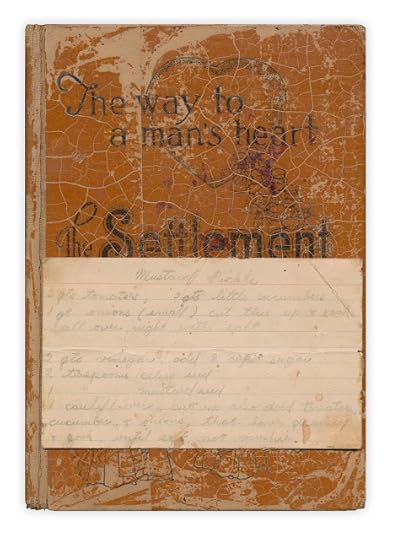 The way to
a man's heart
The Settlement
Mustard Pickle
3 qts tomatoes, 2 qts little cucumbers
1 qt onions (small) cut these up & soak
all over night with salt
2 qts vinegar, add 3 cups sugar
2 teaspoons celery seed
mustard seed
1 cauliflower, cut up and add tomatoes
cucumbers & onions that have
& cook until